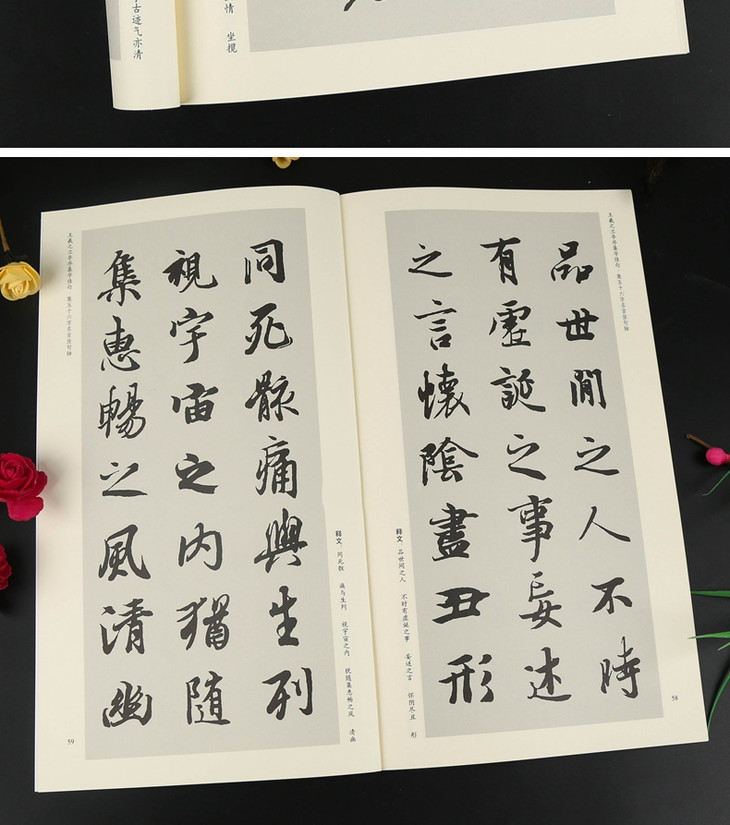 古迹气亦清
情 坐揽
王羲之兰亭序集字佳句·集五十六字名言佳句轴
品世間之人不時
有虛誕之事妄述
之言懷陰盡丑形
释文：品世间之人 不时有虚诞之事 妄述之言 怀阴尽丑 形
58
同死骸痛與生列
視宇宙之內猶随
集惠暢之風清幽
释文：同死骸 痛与生列 视宇宙之内 犹随集惠畅之风 清幽
王羲之兰亭序集字佳句·集五十六字名言佳句轴
59